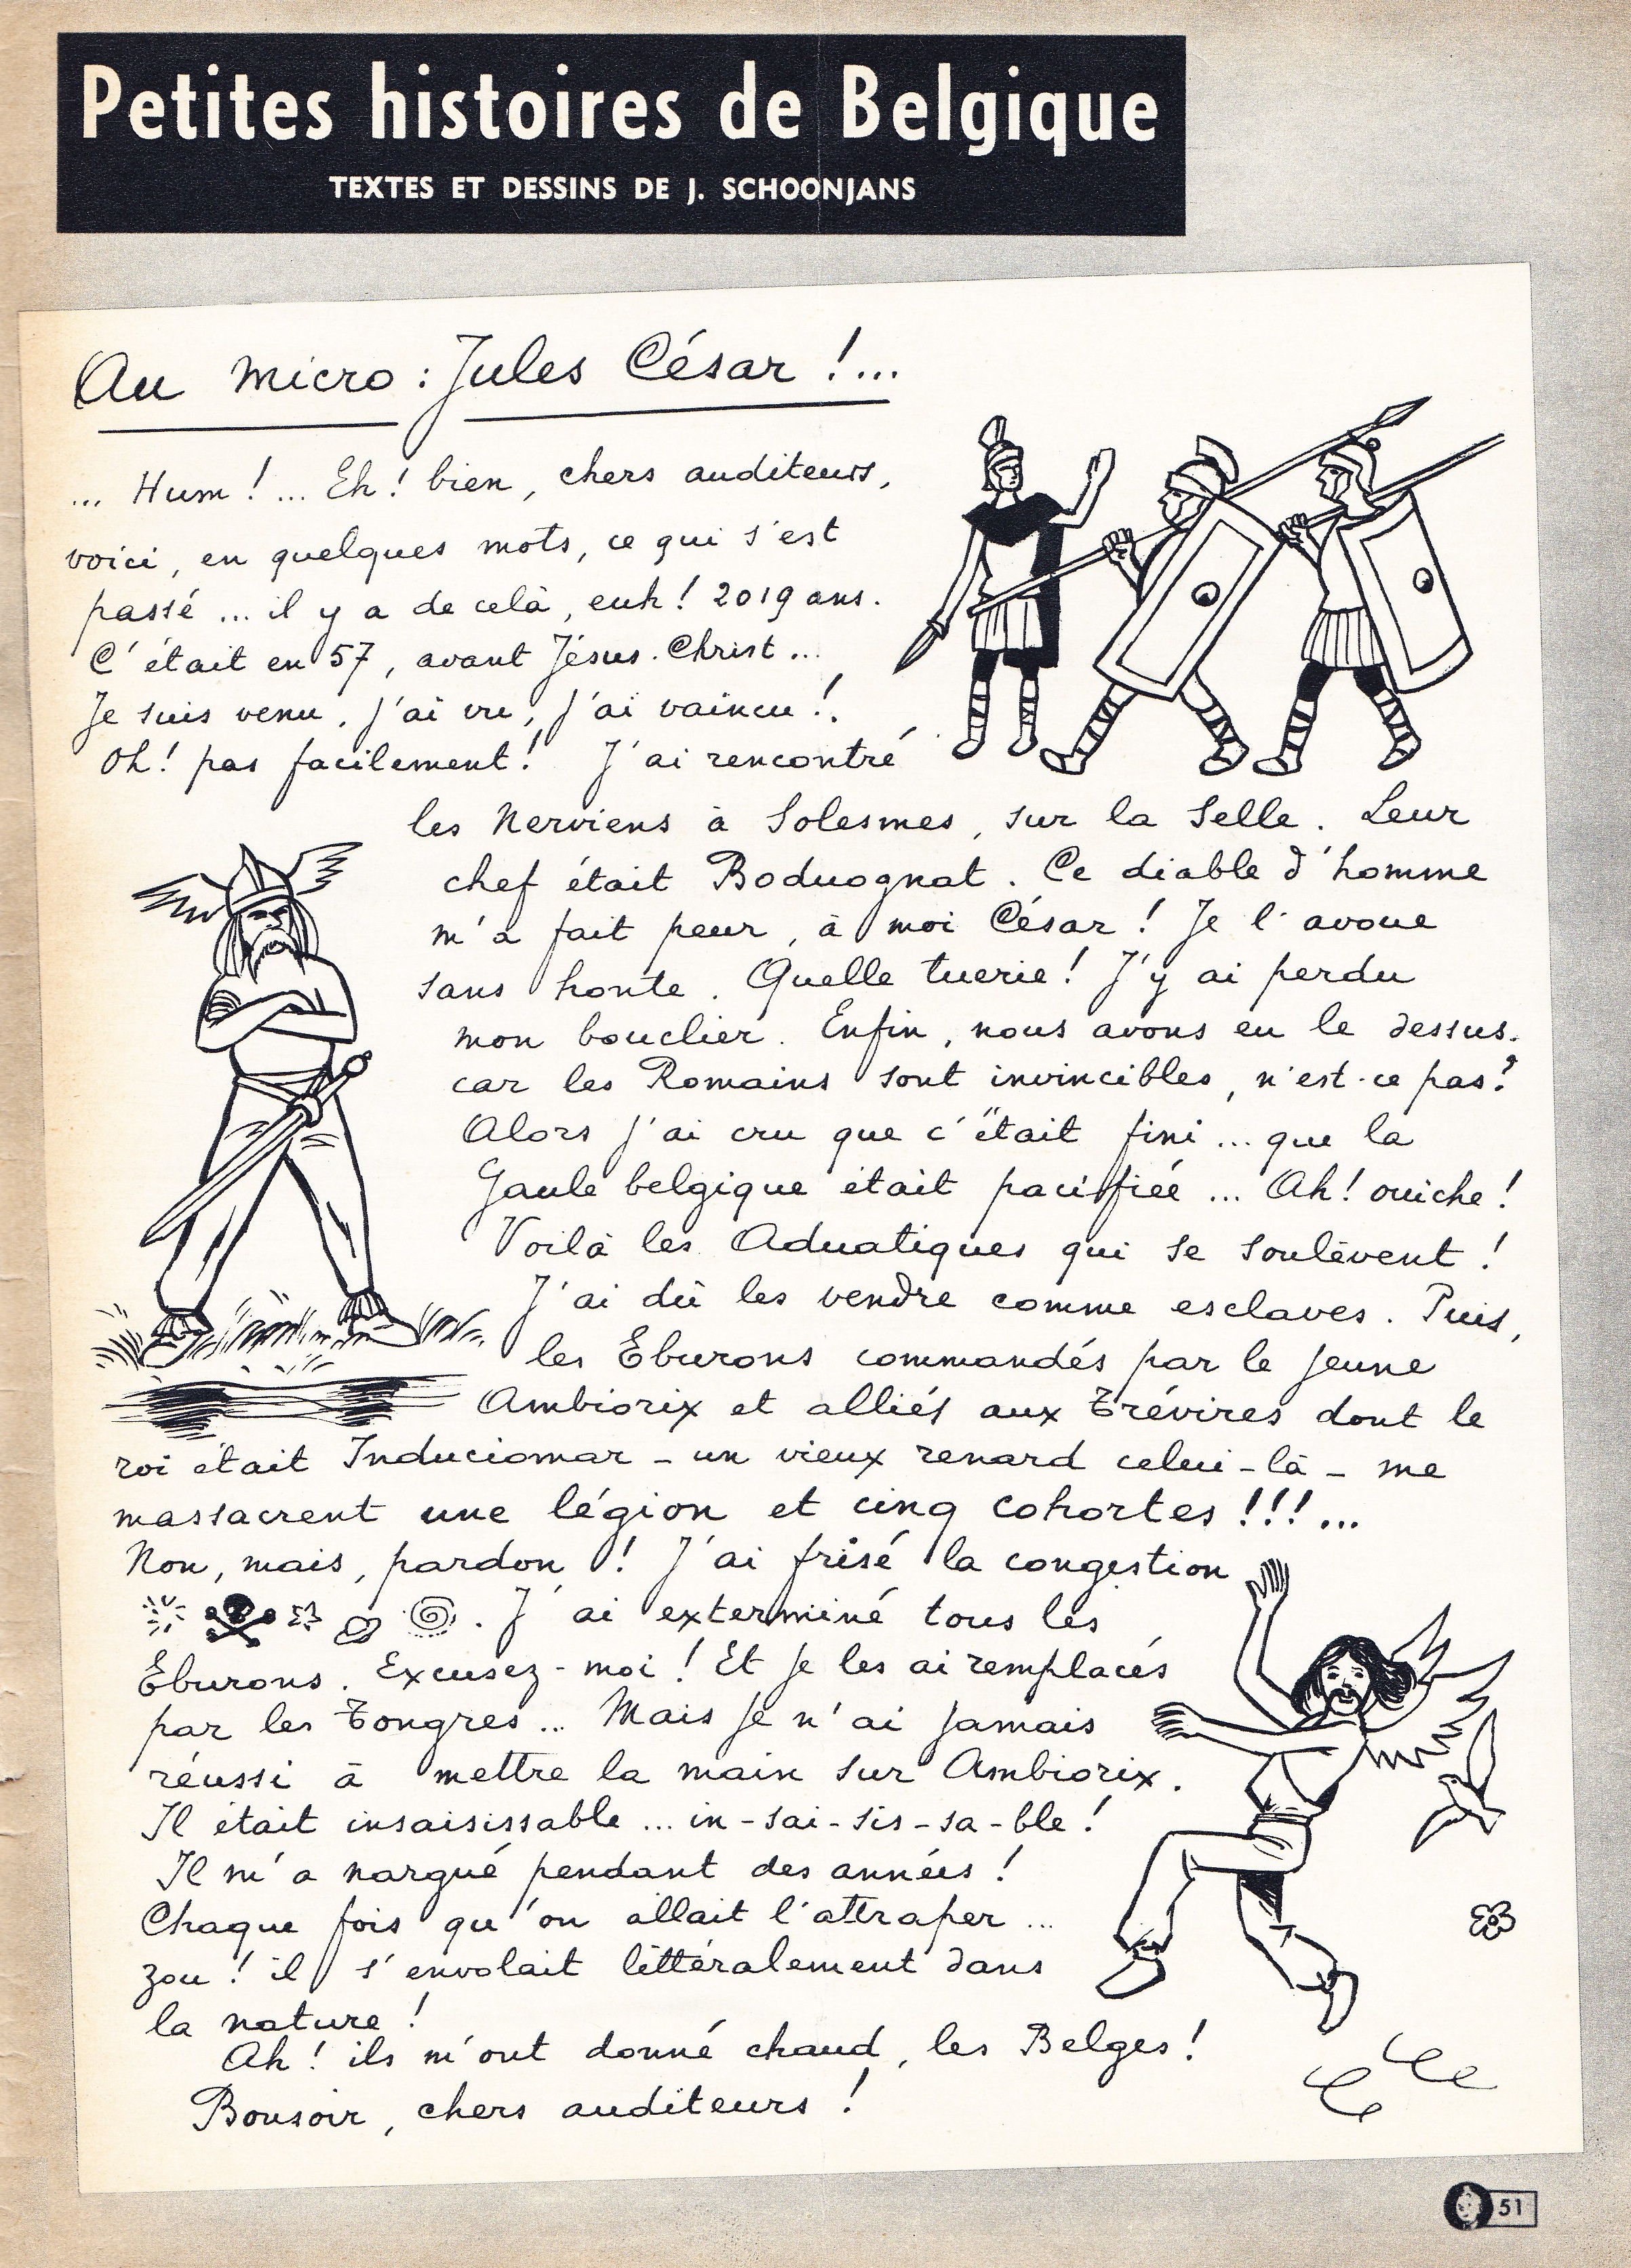 Petites histoires de Belgique
TEXTES ET DESSINS DE J. SCHOONJANS
Au micro : Jules César !...
... Hum ! ... Eh ! bien, chers auditeurs,
voici, en quelques mots, ce qui s'est
passé ... il y a de celà, euh ! 2019 ans.
C'était en 57, avant Jésus-Christ ...
Je suis venu, j'ai vu, j'ai vaincu !.
Oh ! pas facilement ! J'ai rencontré
les Nerviens à Solesmes, sur la Selle. Leur
chef était Boduognat. Ce diable d'homme
m'a fait peur, à moi César ! Je l'avoue
sans honte. Quelle tuerie ! J'y ai perdu
mon bouclier. Enfin, nous avons eu le dessus.
car les Romains sont invincibles, n'est-ce pas ?
Alors j'ai cru que c'était fini ... que la
Gaule belgique était pacifiée ... Ah ! ouiche !
Voilà les Aduatiques qui se soulèvent !
J'ai dû les vendre comme esclaves. Puis,
les Eburons commandés par le jeune
Ambiorix et alliés aux Trévires dont le
roi était Induciomar - un vieux renard celui-là - me
massacrent une légion et cinq cohortes !!! ...
Non, mais, pardon ! J'ai frisé la congestion
. J'ai exterminé tous les
Eburons. Excusez-moi ! Et je les ai remplacés
par les Tongres ... Mais je n'ai jamais
réussi à mettre la main sur Ambiorix.
Il était insaisissable ... in-sai-sis-sa-ble !
Il m'a nargué pendant des années !
Chaque fois qu'on allait l'attraper ...
zou ! il s'envolait littéralement dans
la nature !
Ah ! ils m'ont donné chaud, les Belges !
Bonsoir, chers auditeurs !
51